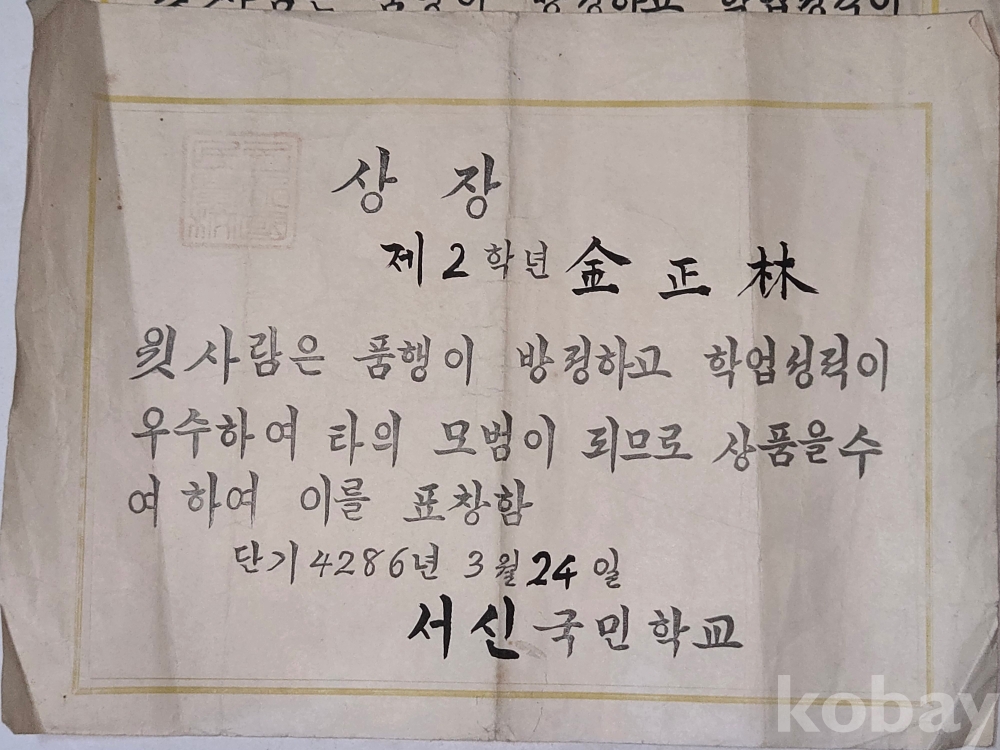 상 장
제 2 학년 金 正 林
윗 사람은 품행이 방정하고 학업성적이
우수하여 타의 모범이 되므로 상품을 수
여 하여 이를 표창함
단기 4286년 3월 24 일
서신 국민학교
kobay